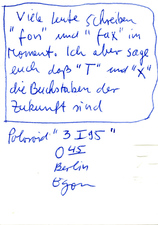 Viele leute schreiben
"fon" und "fax" im
Moment. Ich aber sage
euch daß "T" und "X"
die Buchstaben der
Zukunft sind
Polaroid "3 I 95"
0 45
Berlin
Egon